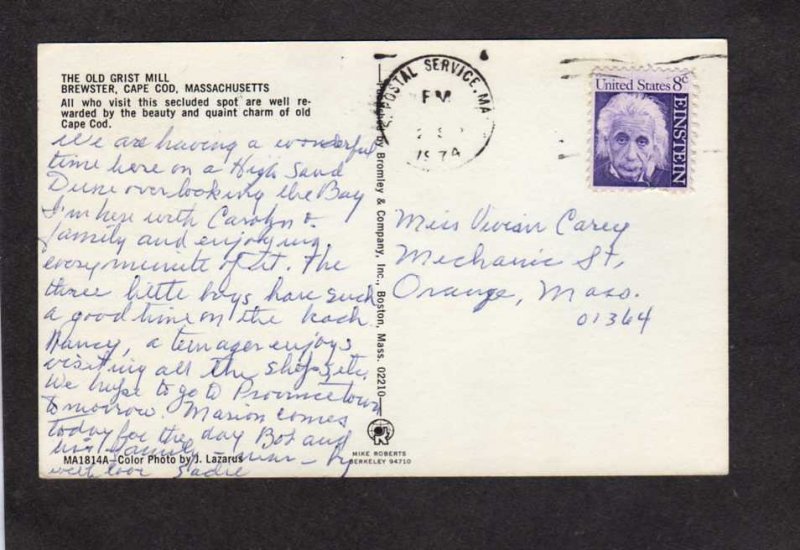 THE OLD GRIST MILL
BREWSTER, CAPE COD, MASSACHUSETTS
All who visit this secluded spot are well re-
warded by the beauty and quaint charm of old
Cape Cod.
We are having a wonderful
time here on a High Sand
Dune overlooking the Bay
I'm here with Carolyn &
family and enjoying
every minute of it. The
three little boys have such
a good time on the beach
Nancy, a teenager enjoys
visiting all the shops, etc.
We hope to go to Provincetown
tomorrow. Marion comes
today for the day Bob and
his family
with love Sadie
MA1814A—Color Photo by J. Lazarus
by Bromley & Company, Inc., Boston, Mass. 02210
MIKE ROBERTS
BERKELEY 94710
POSTAL SERVICE, MA
PM
1974
United States 8c
EINSTEIN
Miss Vivian Carey
Mechanic St,
Orange, Mass.
01364